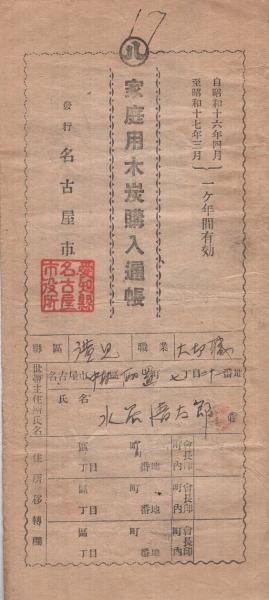 17
八
自昭和十六年四月
至昭和十七年三月
一ケ年間有効
家庭用木炭購入通帳
發行 名古屋市
愛知縣
名古屋
市役所
區
職業
名古屋市 區 町 丁目 番地
世帶主住所氏名
氏名
住所移轉欄
區 町
丁目 番地
町内會長印
區 町
丁目 番地
町内會長印
區 町
丁目 番地
町内會長印